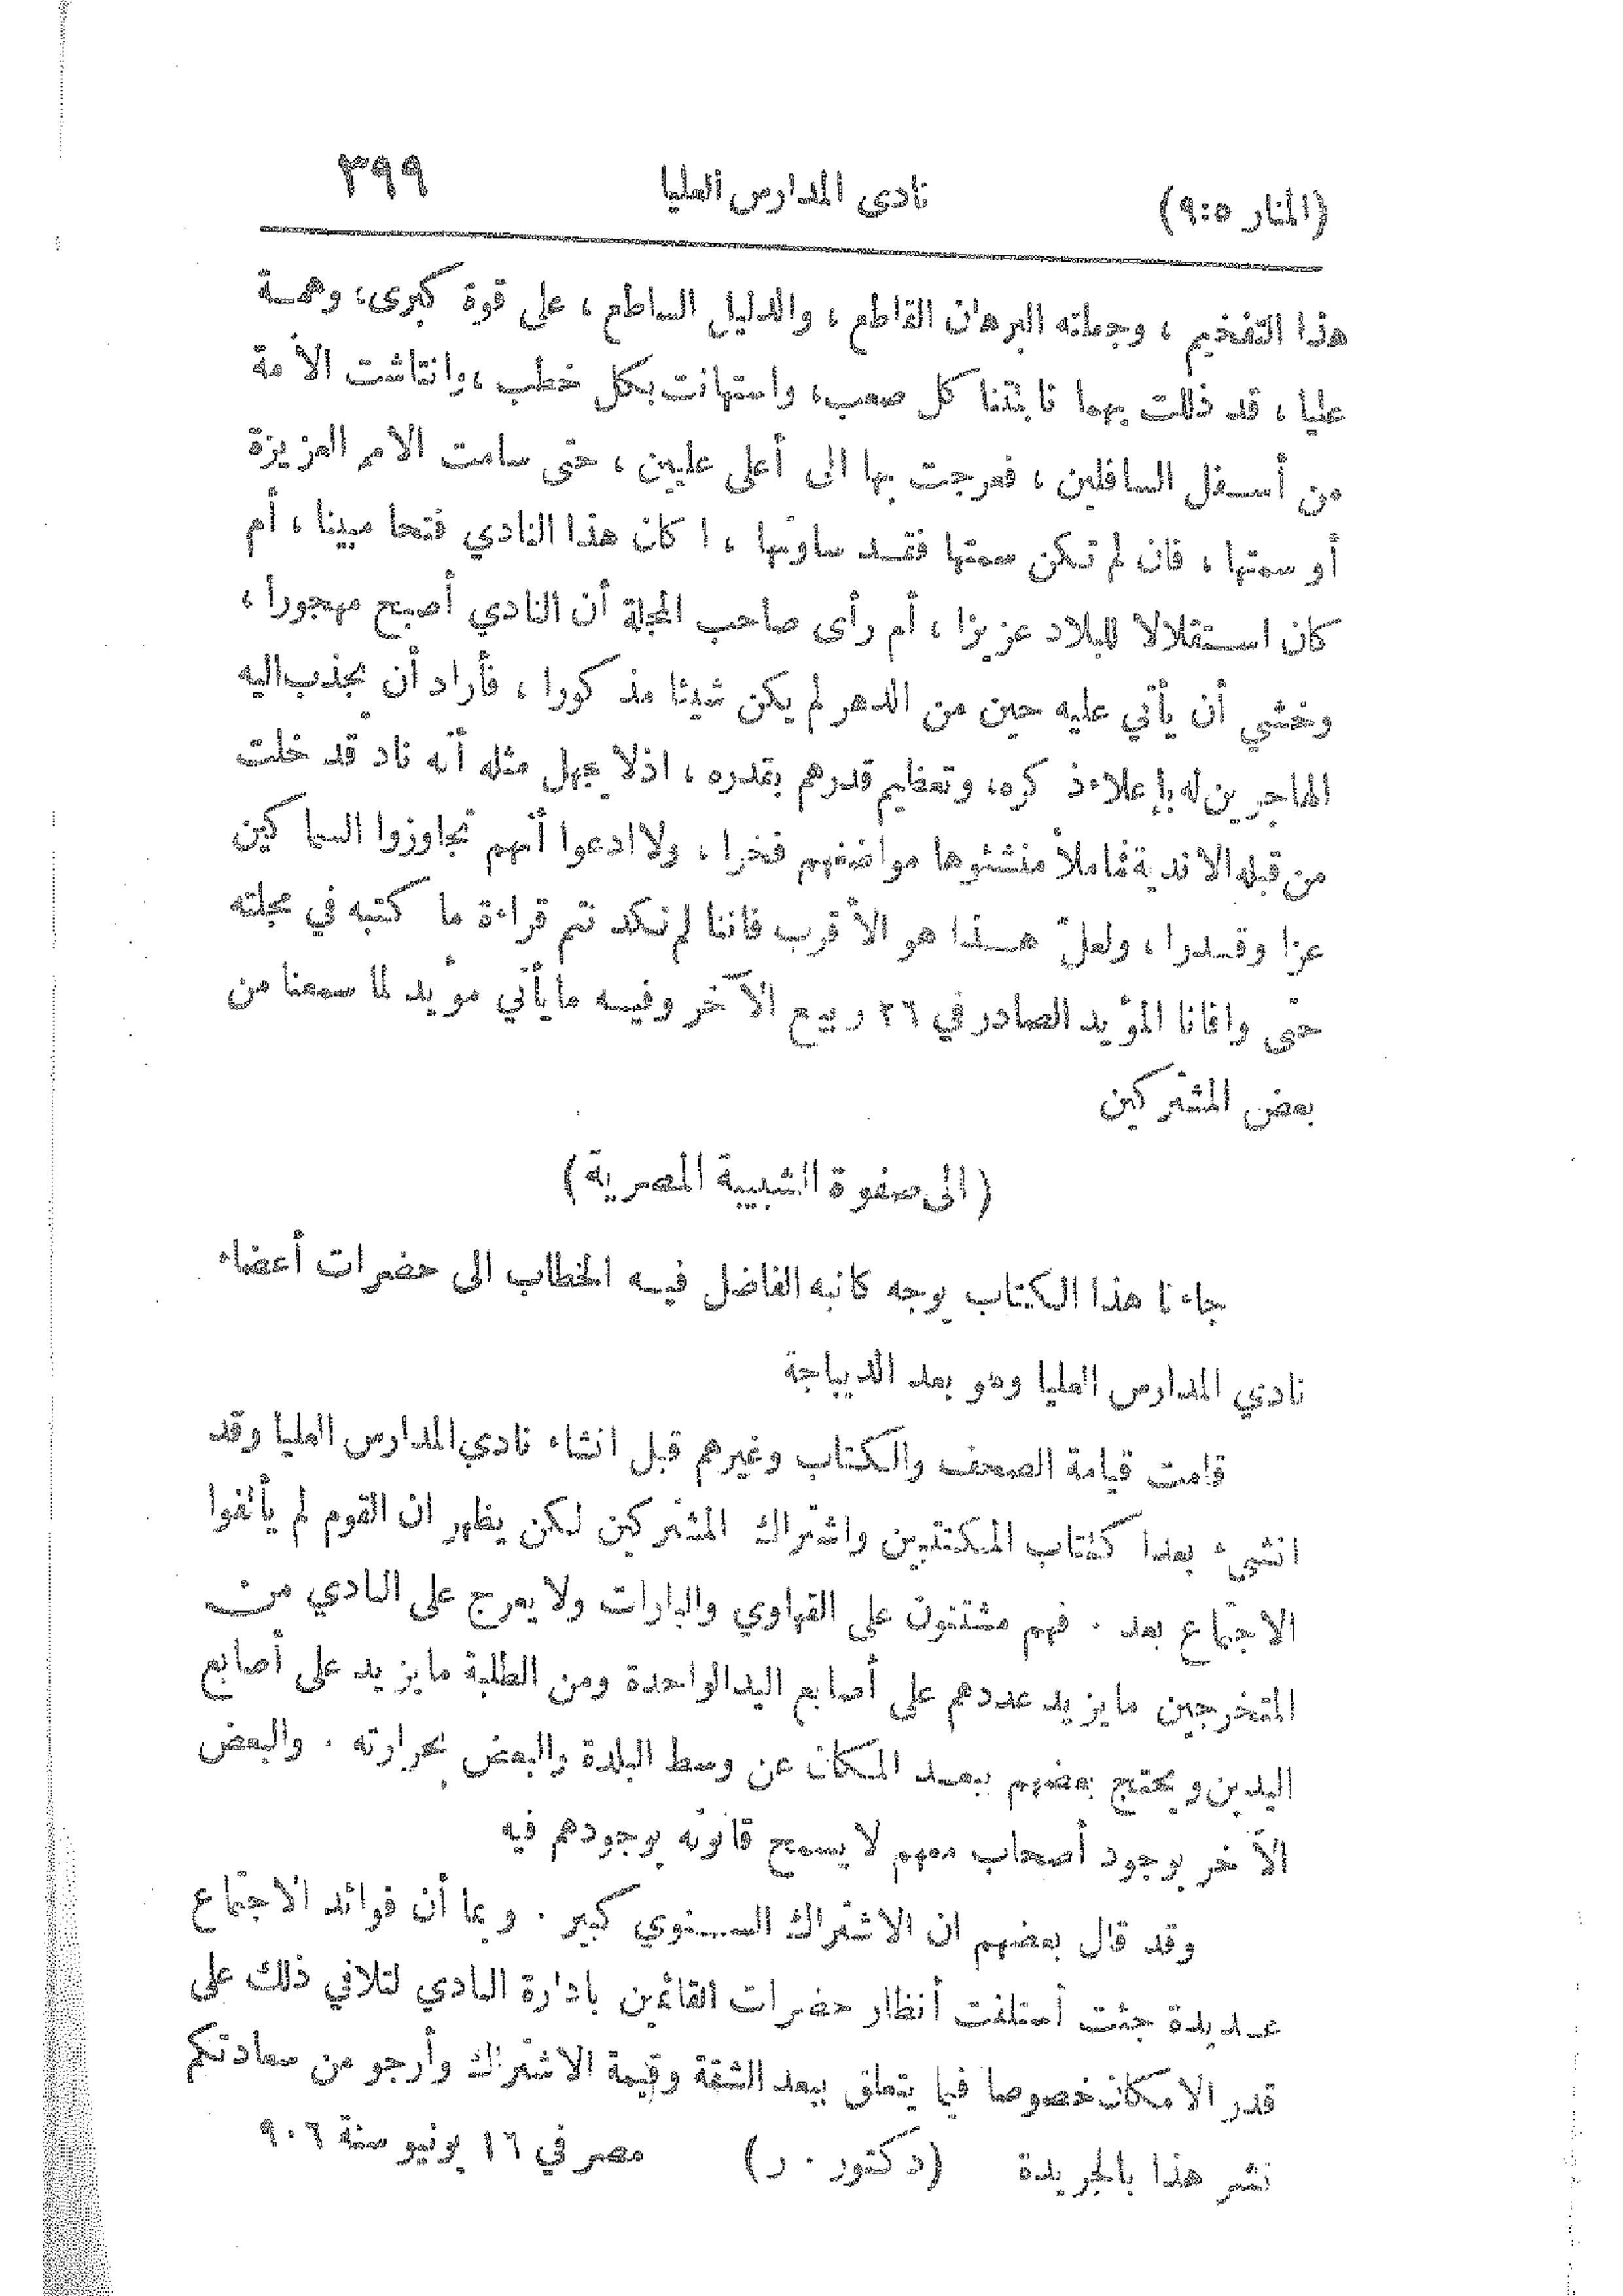 (المنار ٩:٥) نادى المدارس العليا ٣٩٩
هذا التفخيم ، وجعلته البرهان القاطع ، والدليل الساطع ، على قوة كبرى، وهمة
عليا ، قد ذللت بهما نابتتنا كل صعب، واستهانت بكل خطب ، وانتاشت الأمة
من أسفل السافلين ، فعرجت بها الى أعلى عليين ، حتى سامت الامم العزيزة
أو سمتها ، فان لم تكن سمتها فقد ساوتها ، ا كان هذا النادي فتحا مبينا ، أم
كان استقلالا للبلاد عزيزا ، أم رأى صاحب المجلة أن النادي أصبح مهجورا ،
وخشي أن يأتي عليه حين من الدهر لم يكن شيئا مذكورا ، فأراد أن يجذب اليه
الهاجرين له بإعلاء ذكره، وتعظيم قدرهم بقدره ، اذ لا يجهل مثله أنه ناد قد خلت
من قبله الاندية فما ملأ منشئوها مواضغهم فخرا ، ولا ادعوا أنهم تجاوزوا السماكين
عزا وقدرا ، ولعلّ هذا هو الأقرب فاننا لم نكد نتم قراءة ما كتبه في مجلته
حتى وافانا المؤيد الصادر في ٢٦ ربيع الآخر وفيه ما يأتي مؤيد لما سمعنا من
بعض المشتركين
(الى صفوة الشبيبة المصرية)
جاءنا هذا الكتاب يوجه كاتبه الفاضل فيه الخطاب الى حضرات أعضاء
نادي المدارس العليا وهو بعد الديباجة
قامت قيامة الصحف والكتاب وغيرهم قبل انشاء نادي المدارس العليا وقد
انشيء بعدا كتتاب المكتتبين واشتراك المشتركين لكن يظهر ان القوم لم يألفوا
الاجتماع بعد . فهم مشتتون على القهاوي والبارات ولا يعرج على النادي من
المتخرجين ما يزيد عددهم على أصابع اليد الواحدة ومن الطلبة ما يزيد على أصابع
اليدين ويحتج بعضهم ببعد المكان عن وسط البلدة والبعض بحرارته . والبعض
الآخر بوجود أصحاب معهم لا يسمح قانونه بوجودهم فيه
وقد قال بعضهم ان الاشتراك السنوي كبير . وبما أن فوائد الاجتماع
عديدة جئت أستلفت أنظار حضرات القائمين بادارة النادي لتلافي ذلك على
قدر الامكان خصوصا فيما يتعلق ببعد الشقة وقيمة الاشتراك وأرجو من سعادتكم
نشر هذا بالجريدة (دكتور . ر) مصر في ١٦ يونيو سنة ٩٠٦